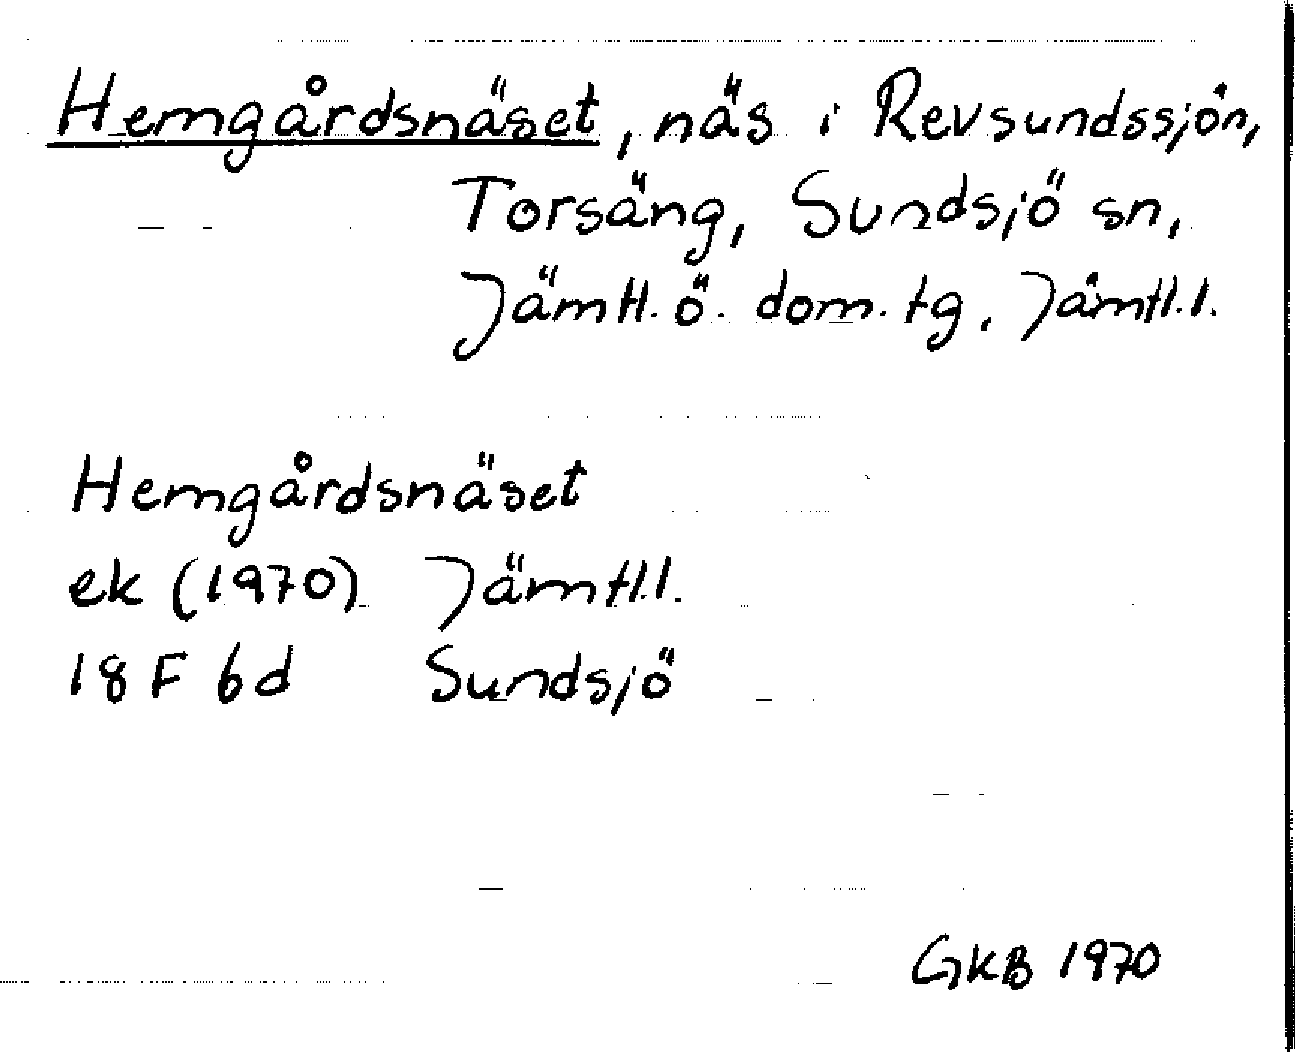 Hemgårdsnäset, näs i Revsundssjön,
Torsäng, Sundsjö sn,
Jämtl. ö. dom. tg, Jämtl.l.
Hemgårdsnäset
ek (1970) Jämtl.l.
18 F 6d Sundsjö
GKB 1970